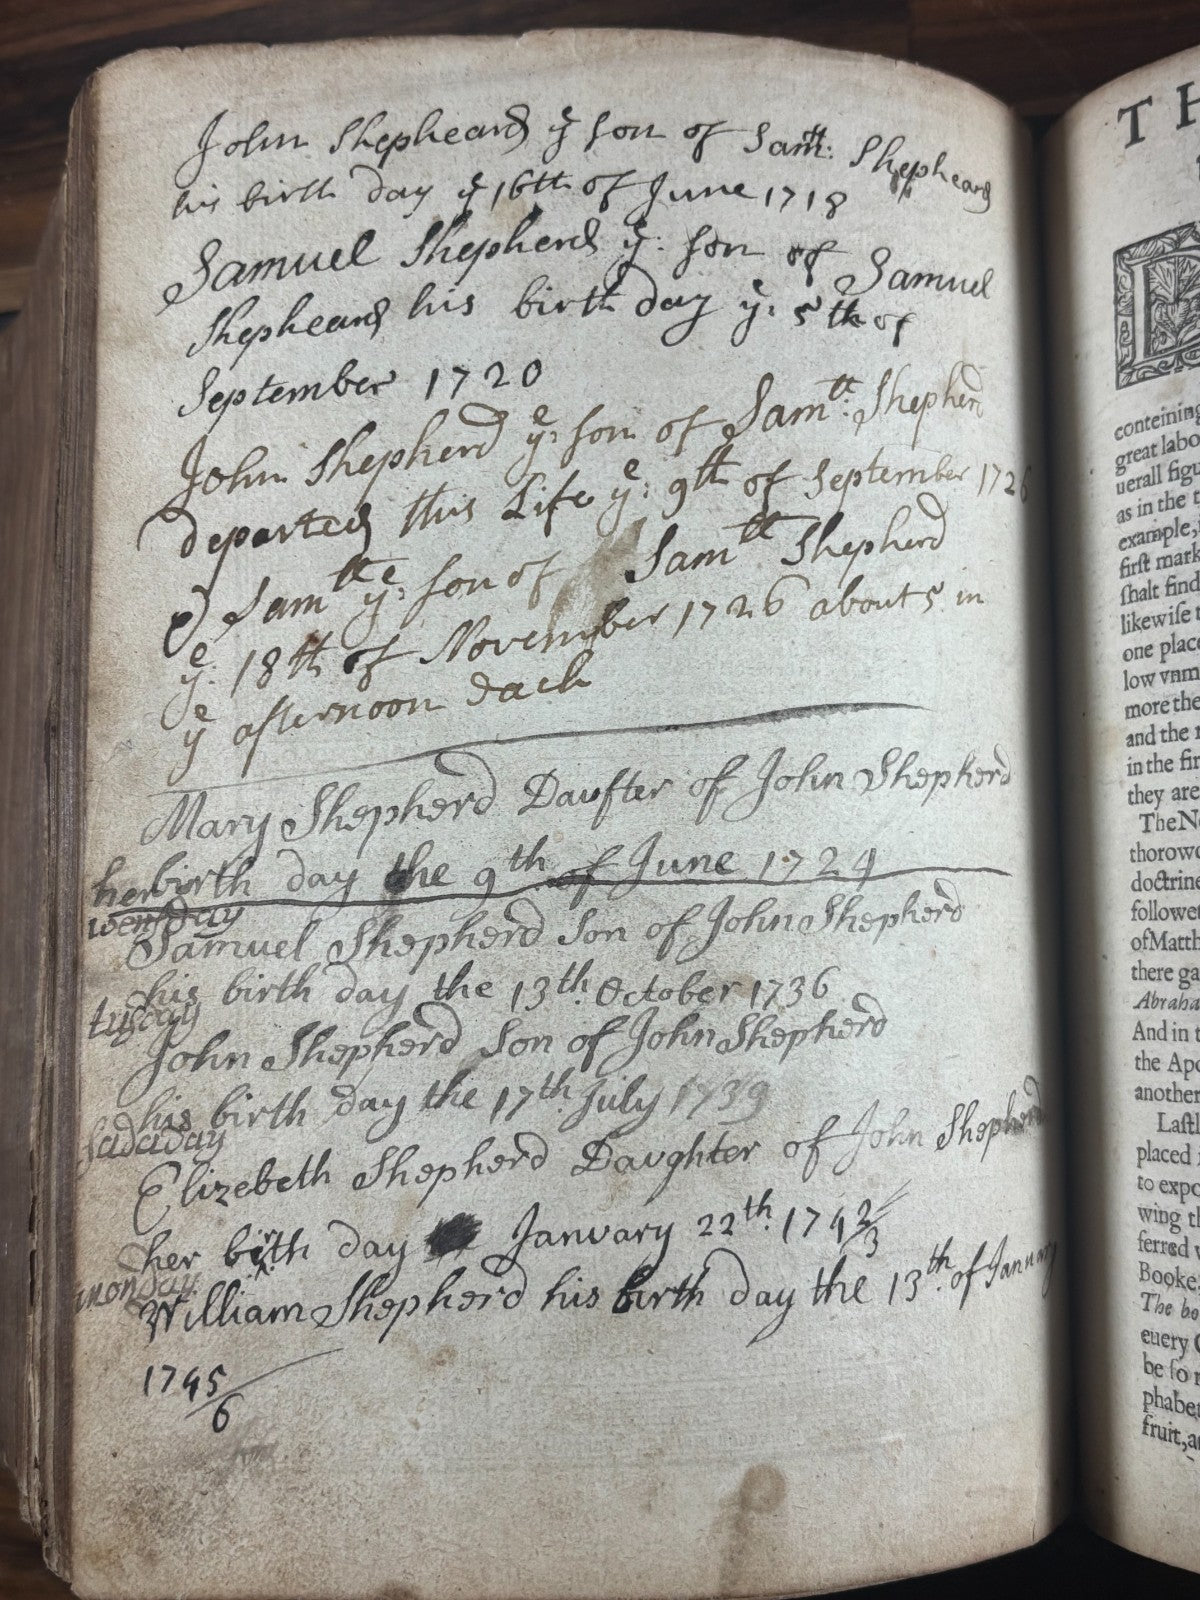 John Shepheard ye son of Samll: Shepheard
his birth day ye 16th of June 1718
Samuel Shepherd ye: son of Samuel
Shepheard his birth day ye: 5th of
September 1720
John Shepherd ye: son of Samll: Shepherd
departed this Life ye: 9th of September 1726
Samll ye: son of Samll Shepherd
ye: 18th of November 1726 about 5 in
ye afternoon Each
Mary Shepherd Daufter of John Shepherd
her birth day the 9th of June 1724
wensday
Samuel Shepherd Son of John Shepherd
his birth day the 13th October 1736
tusday
John Shepherd Son of John Shepherd
his birth day the 17th July 1739
sadaday
Elizebeth Shepherd Daughter of John Shepherd
her birth day January 22th 1742/3
monday
William Shepherd his birth day the 13th of January
1745/6
TH
conteining
great labo
uerall figu
as in the
example,
first mark
shalt find
likewise
one place
low vnm
more the
and the
in the fir
they are
The N
thorow
doctrine
followet
of Matth
there ga
Abraha
And in t
the Apo
another
Lastl
placed
to expo
wing th
ferred
Booke
The bo
euery
be so
phabet
fruit, a